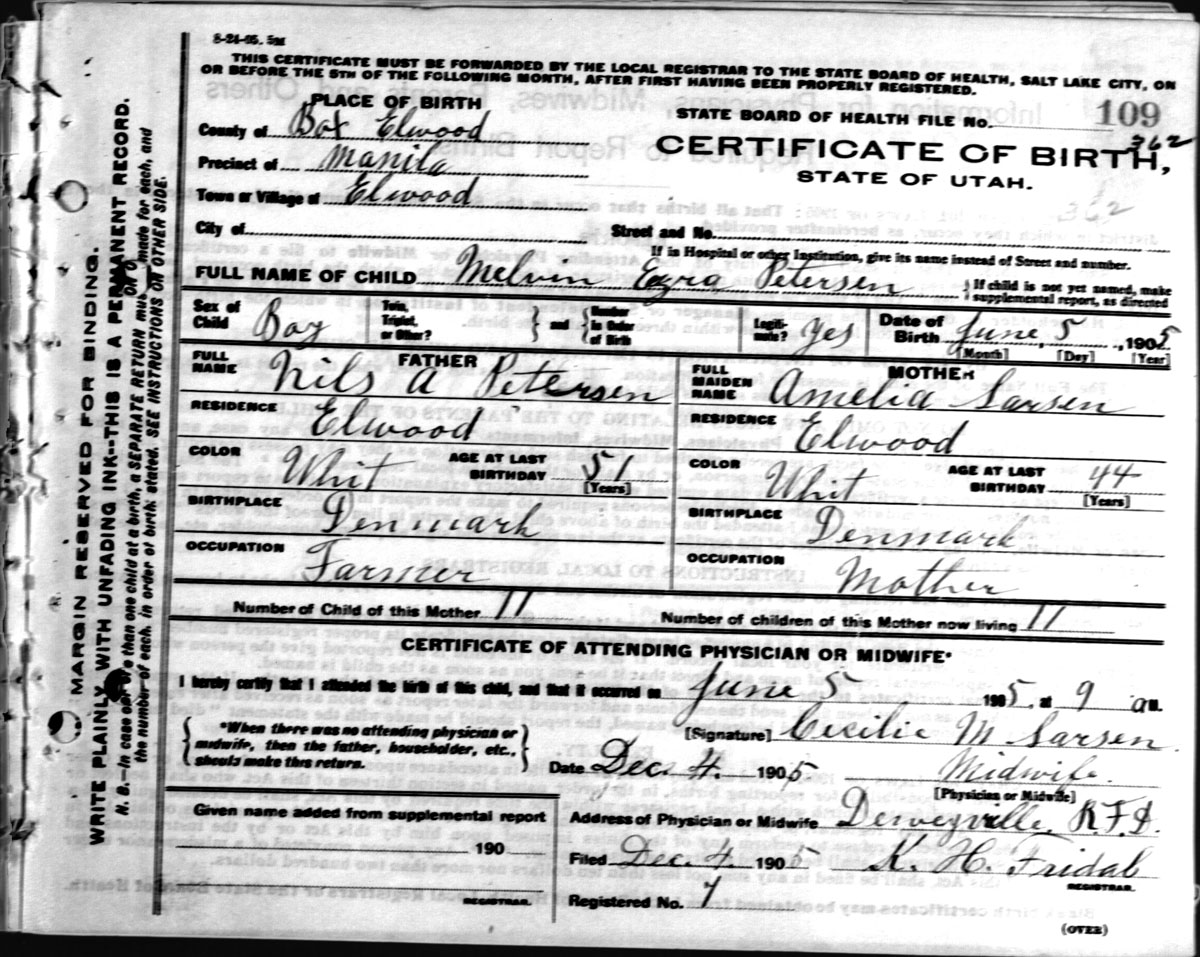 8-24-05. 5M
THIS CERTIFICATE MUST BE FORWARDED BY THE LOCAL REGISTRAR TO THE STATE BOARD OF HEALTH, SALT LAKE CITY, ON
OR BEFORE THE 5TH OF THE FOLLOWING MONTH, AFTER FIRST HAVING BEEN PROPERLY REGISTERED.
PLACE OF BIRTH
STATE BOARD OF HEALTH FILE No. 109
362
County of Box Elwood
CERTIFICATE OF BIRTH,
Precinct of Manila
STATE OF UTAH.
Town or Village of Elwood
362
City of
Street and No.
If in Hospital or other Institution, give its name instead of Street and number.
FULL NAME OF CHILD Melvin Ezra Petersen
If child is not yet named, make
supplemental report, as directed
Sex of Child Boy
Twin, Triplet, or Other?
and
Number in Order of Birth
Legiti-mate? Yes
Date of Birth June 5, 1905
[Month] [Day] [Year]
FATHER
FULL NAME Nils A Petersen
MOTHER
FULL MAIDEN NAME Amelia Larsen
RESIDENCE Elwood
RESIDENCE Elwood
COLOR Whit
AGE AT LAST BIRTHDAY 51
[Years]
COLOR Whit
AGE AT LAST BIRTHDAY 44
[Years]
BIRTHPLACE Denmark
BIRTHPLACE Denmark
OCCUPATION Farmer
OCCUPATION Mother
Number of Child of this Mother 11
Number of children of this Mother now living 11
CERTIFICATE OF ATTENDING PHYSICIAN OR MIDWIFE*
I hereby certify that I attended the birth of this child, and that it occurred on June 5 1905, at 9 a M.
*When there was no attending physician or
midwife, then the father, householder, etc.,
should make this return.
[Signature] Cecilie M Larsen
Date Dec. 4. 1905
Midwife.
[Physician or Midwife]
Given name added from supplemental report
190
REGISTRAR.
Address of Physician or Midwife Deweyville R.F.D.
Filed Dec. 4. 1905 K. H. Fridal
REGISTRAR.
Registered No. 7
(OVER)
MARGIN RESERVED FOR BINDING.
WRITE PLAINLY WITH UNFADING INK--THIS IS A PERMANENT RECORD.
N. B.—In case of more than one child at a birth, a SEPARATE RETURN must be made for each, and
the number of each, in order of birth, stated. SEE INSTRUCTIONS ON OTHER SIDE.